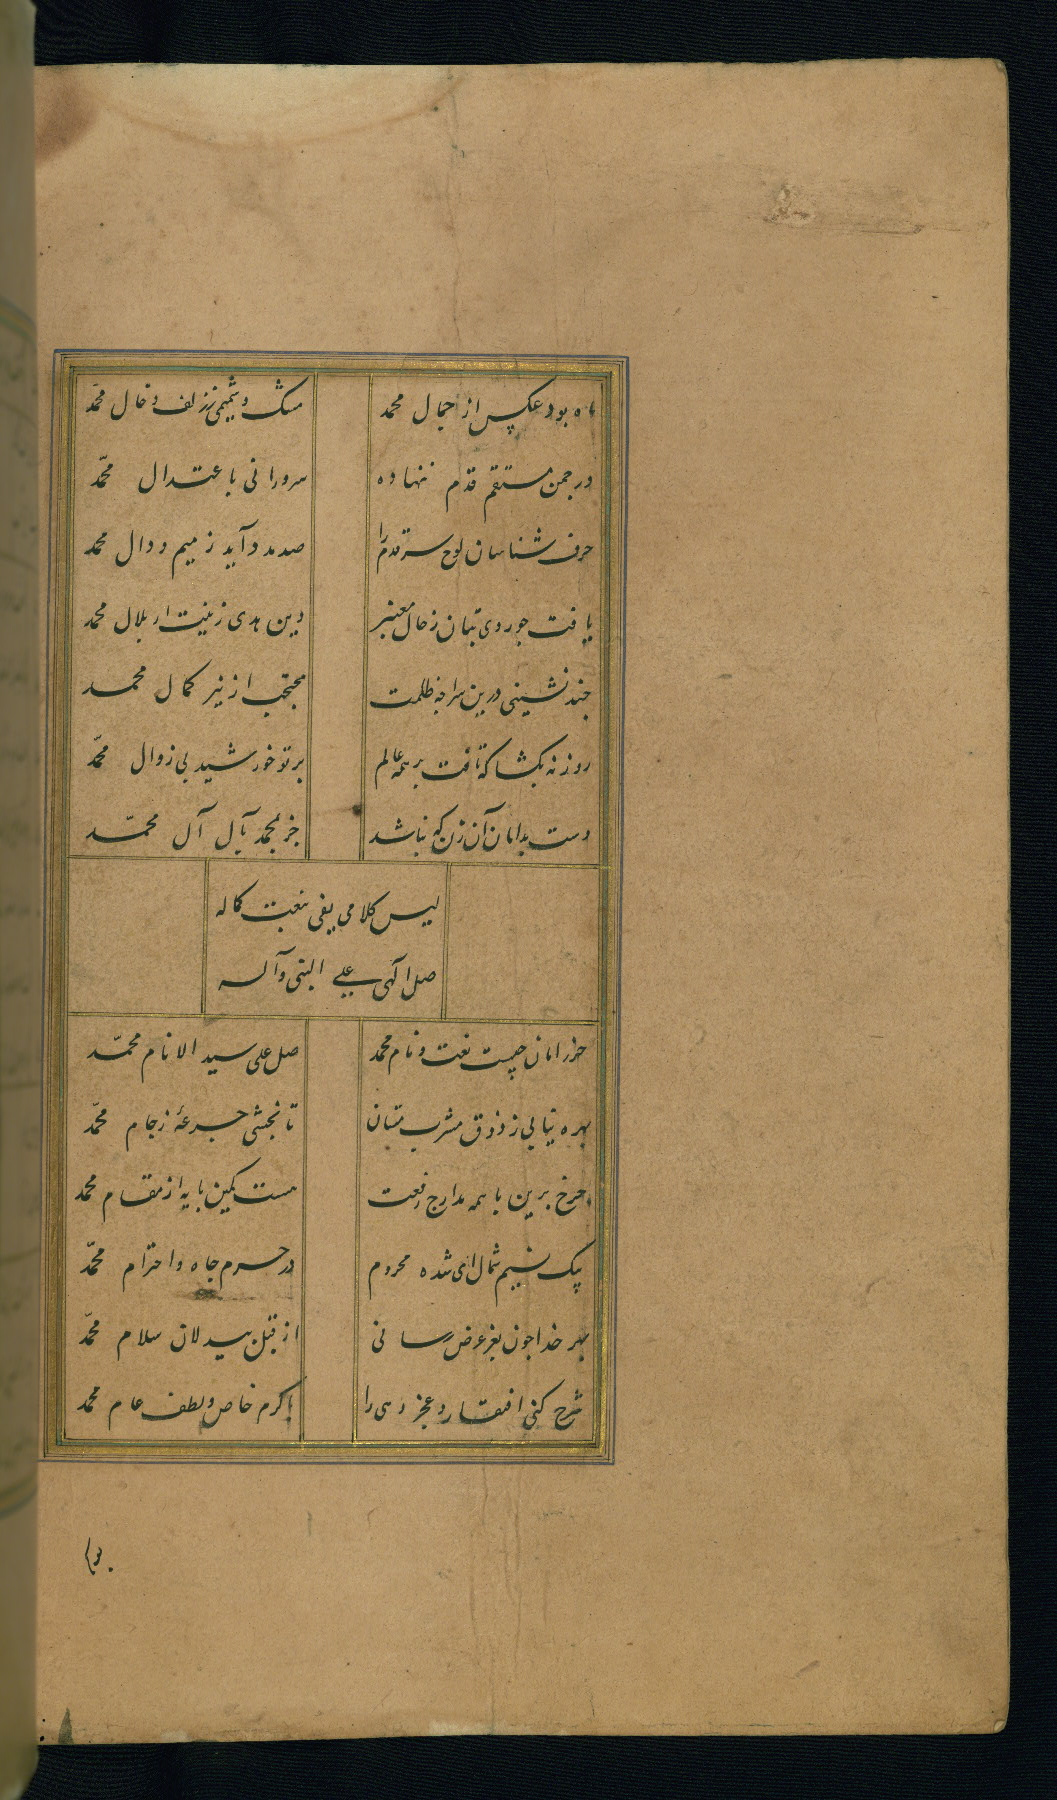 ماه بود عکسی از جمال محمد
مشک و شمیمی ز زلف و خال محمد
در چمن فاستقم قدم ننهاده
سرو روانی باعتدال محمد
حرف شناسان لوح سر قدم را
صد مدد آید ز میم و دال محمد
یافت چو روی بتان ز خال معنبر
دین هدی زینت از بلال محمد
چند نشینی درین سراچه ظلمت
محتجب از نیر کمال محمد
روزنه بگشا که تافت بر همه عالم
پرتو خورشید بی زوال محمد
دست بدامان آن زن که نباشد
جز بمحمد بآل آل محمد
لیس کلامی یفی بنعت کماله
صل الهی علی النبی وآله
حرز امان چیست نعت و نام محمد
صل علی سید الانام محمد
بهره نیابی ز ذوق مشرب مستان
تا نچشی جرعه ز جام محمد
چرخ برین با همه مدارج رفعت
هست کمین پایه از مقام محمد
پیک نسیم شمال ای شده محروم
در حرم جاه و احترام محمد
بهر خدا چون بعز عرض رسانی
از قبل بیدلان سلام محمد
شرح کنی افتقار و عجز رهی را
با کرم خاص و لطف عام محمد